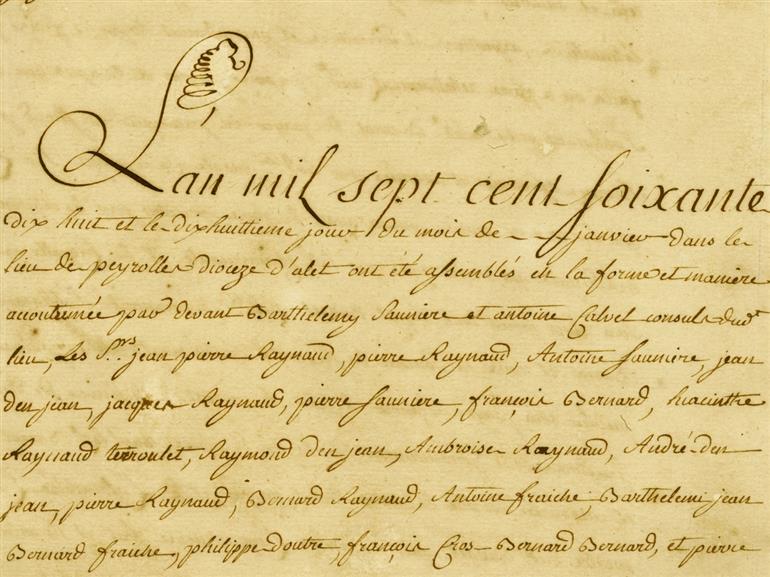 L'an mil sept cent soixante
dix huit et le dixhuittieme jour du mois de janvier dans le
lieu de peyrolles dioceze d'alet ont été assemblés en la forme et maniere
accoutumée par devant Barthelemy Sauniere et antoine Calvet consuls dud.t
lieu, Les S.rs jean pierre Raynaud, pierre Raynaud, Antoine Sauniere, jean
den jean, jacques Raynaud, pierre Sauniere, françois Bernard, hiacinthe
Raynaud terroulet, Raymond den jean, Ambroise Raynaud, André den
jean, pierre Raynaud, Bernard Raynaud, Antoine fraiche, Barthelemi jean
Bernard fraiche, philippe doutre, françois Cros Bernard Bernard, et pierre